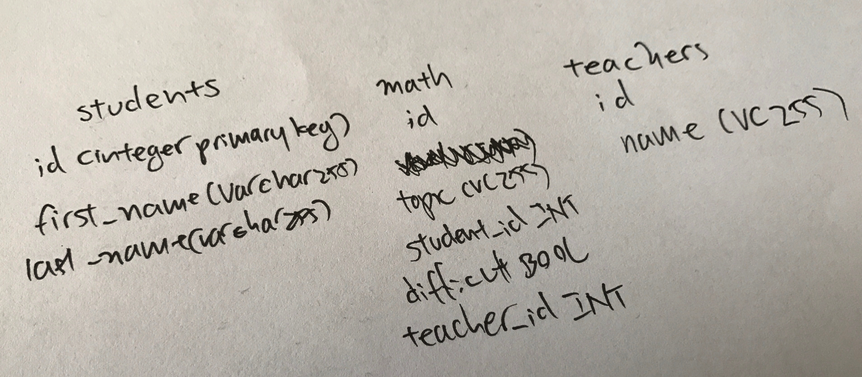 students
id (integer primary key)
first_name (varchar255)
last_name(varchar255)
math
id
topic (VC255)
student_id INT
difficult BOOL
teacher_id INT
teachers
id
name (VC255)